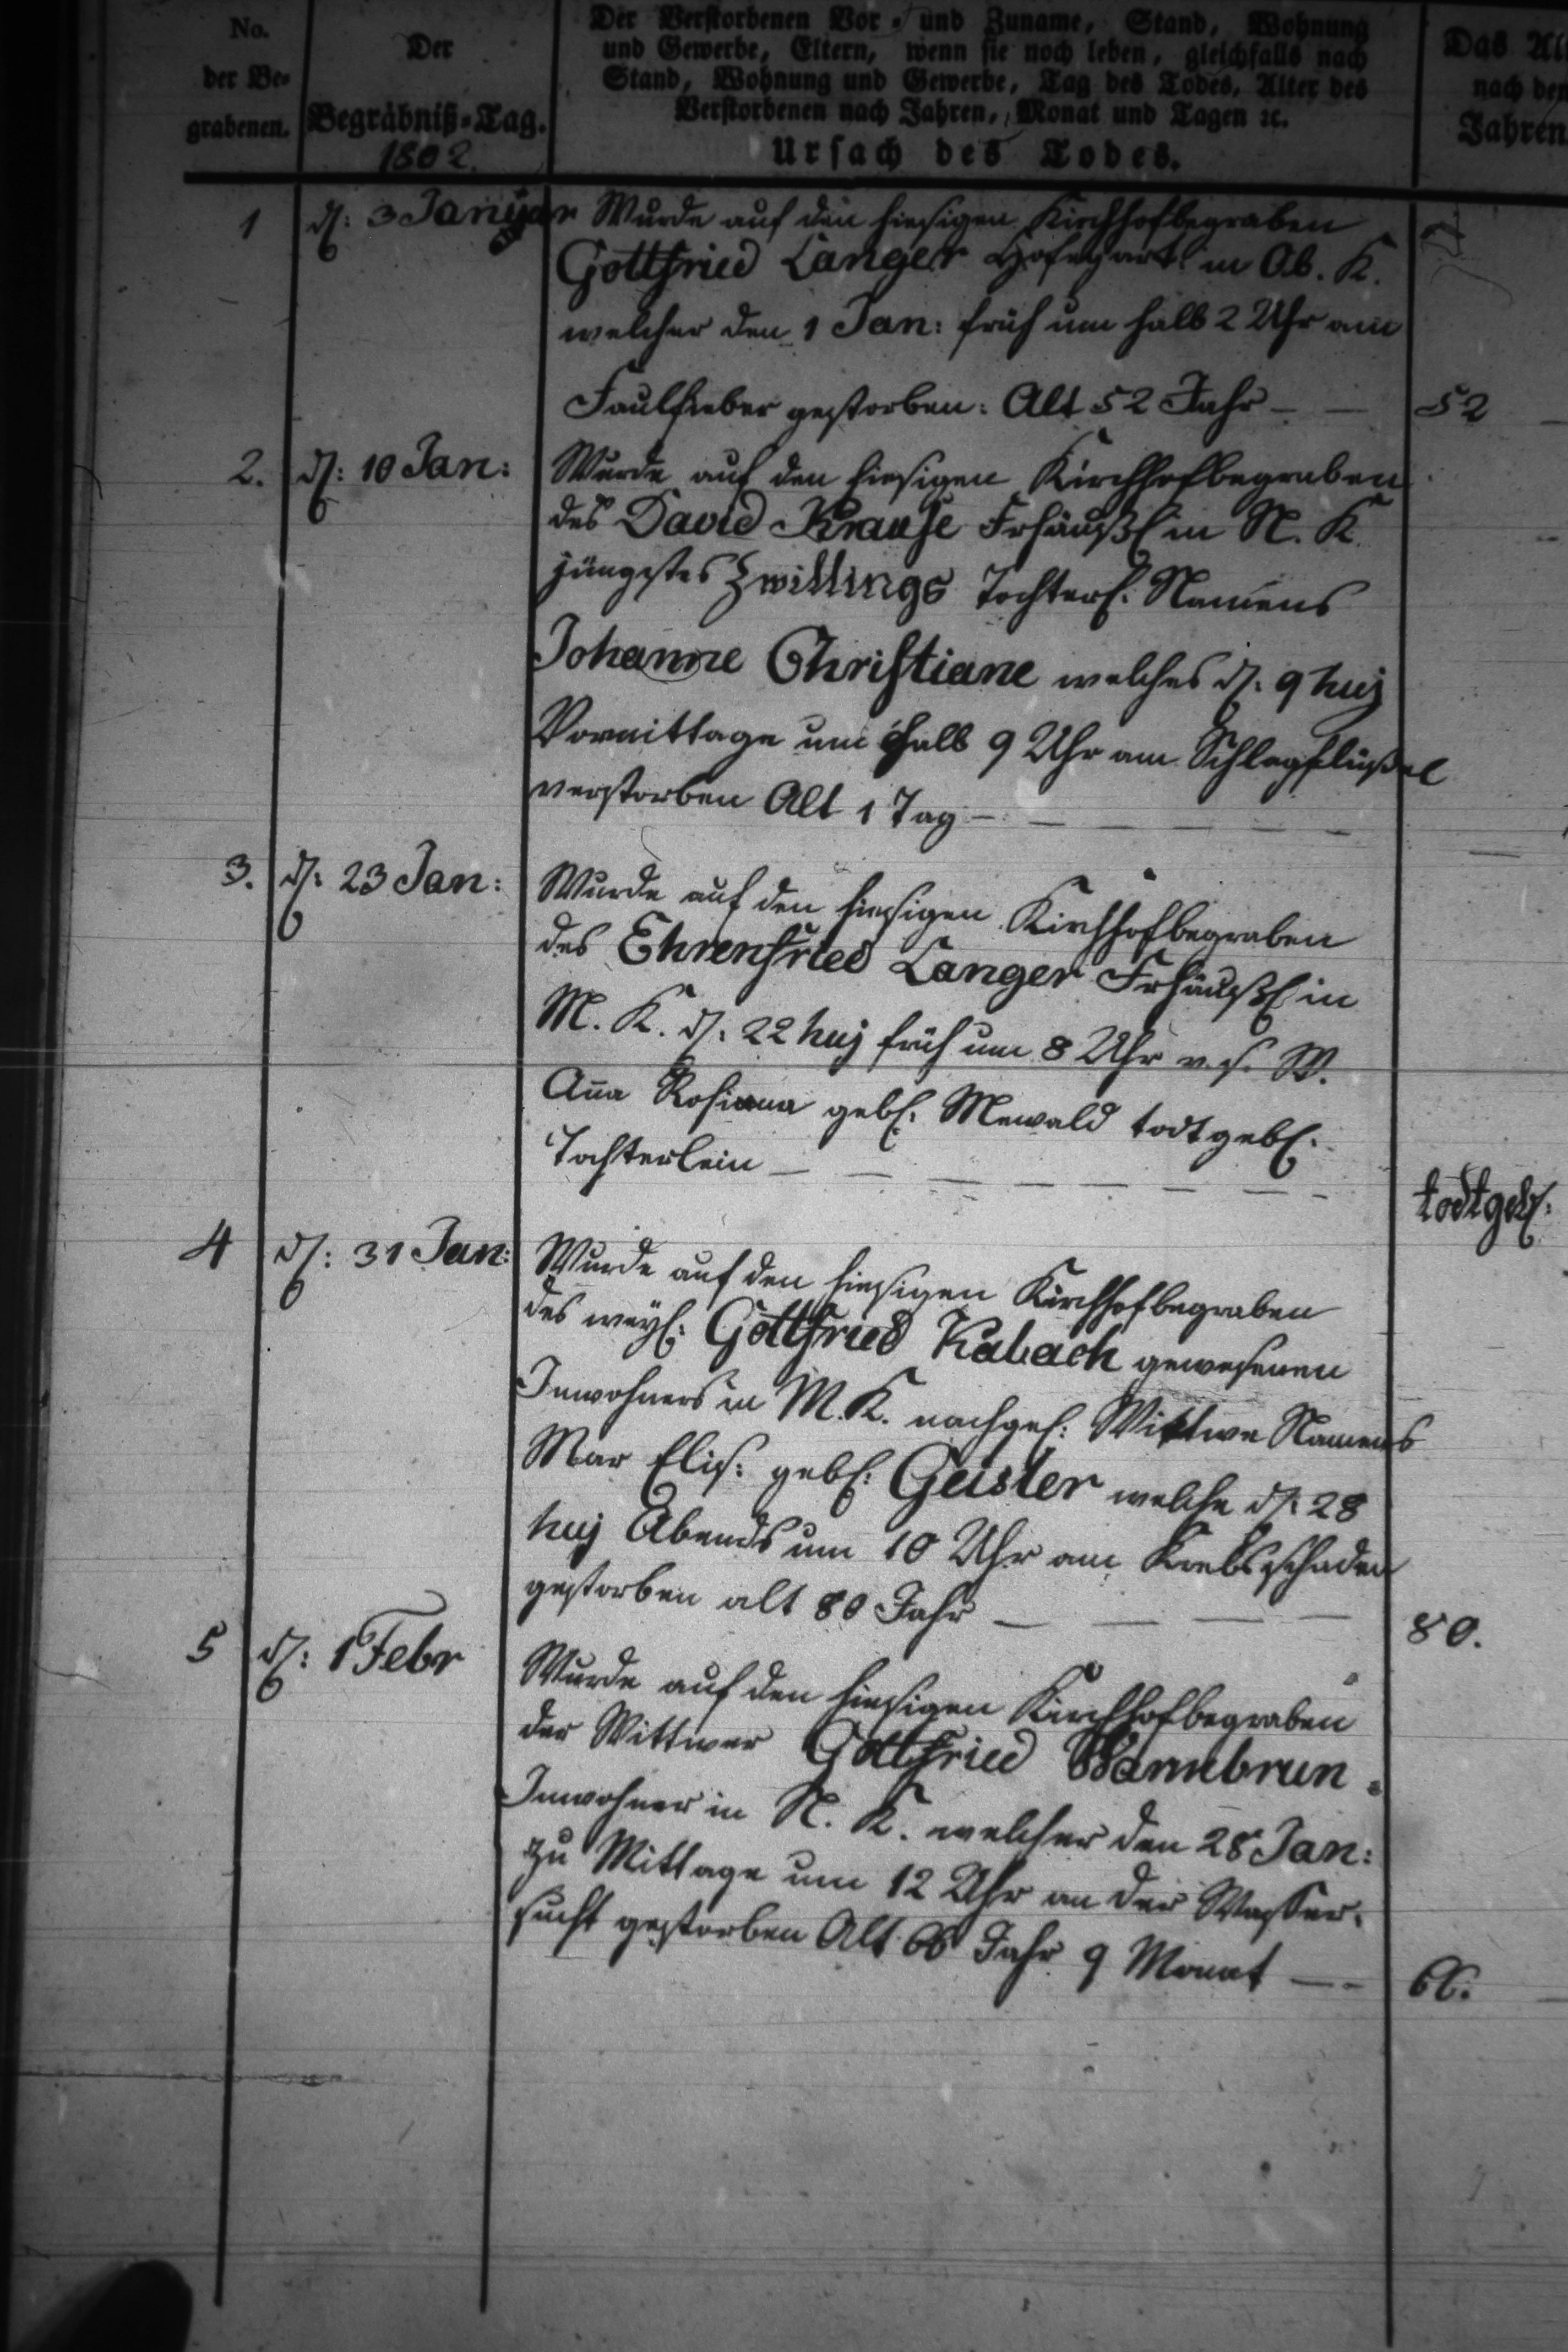 No.
der Be-
grabenen.
Der
Begräbniß-Tag.
1802.
Der Verstorbenen Vor- und Zuname, Stand, Wohnung
und Gewerbe, Eltern, wenn sie noch leben, gleichfalls nach
Stand, Wohnung und Gewerbe, Tag des Todes, Alter des
Verstorbenen nach Jahren, Monat und Tagen ꝛc.
Ursach des Todes.
Das Al
nach den
Jahren
1 d: 3 Januar Wurde auf den hiesigen Kirchhof begraben
Gottfried Langer Hofegärt. in Ob. K.
welcher den 1 Jan: früh um halb 2 Uhr am
Faulfieber gestorben: Alt 52 Jahr — — 52
2. d: 10 Jan: Wurde auf den hiesigen Kirchhof begraben
des David Krause Frhäußl in N. K.
jüngstes Zwillings Töchterl. Namens
Johanne Christiane welches d: 9 huj
Vormittage um halb 9 Uhr am Schlagflüßel
verstorben Alt 1 Tag — — — — —
3. d: 23 Jan: Wurde auf den hiesigen Kirchhof begraben
des Ehrenfried Langer Frhäußl in
M. K. d: 22 huj früh um 8 Uhr v. s. W.
Aña Rosina gebl. Mewald todtgebl.
Töchterlein — — — — — — — todtgebl:
4 d: 31 Jan: Wurde auf den hiesigen Kirchhof begraben
des weyl: Gottfried Kabach gewesenen
Inwohners in M. K. nachgel: Wittwe Namens
Mar Elis: gebl: Geisler welche d: 28
huj Abends um 10 Uhr am Krebsschaden
gestorben alt 80 Jahr — — — — 80.
5 d: 1 Febr Wurde auf den hiesigen Kirchhof begraben
der Wittwer Gottfried Warmbrun
Inwohner in N. K. welcher den 28 Jan:
zu Mittage um 12 Uhr an der Wasser-
sucht gestorben Alt 66 Jahr 9 Monat — - 66.